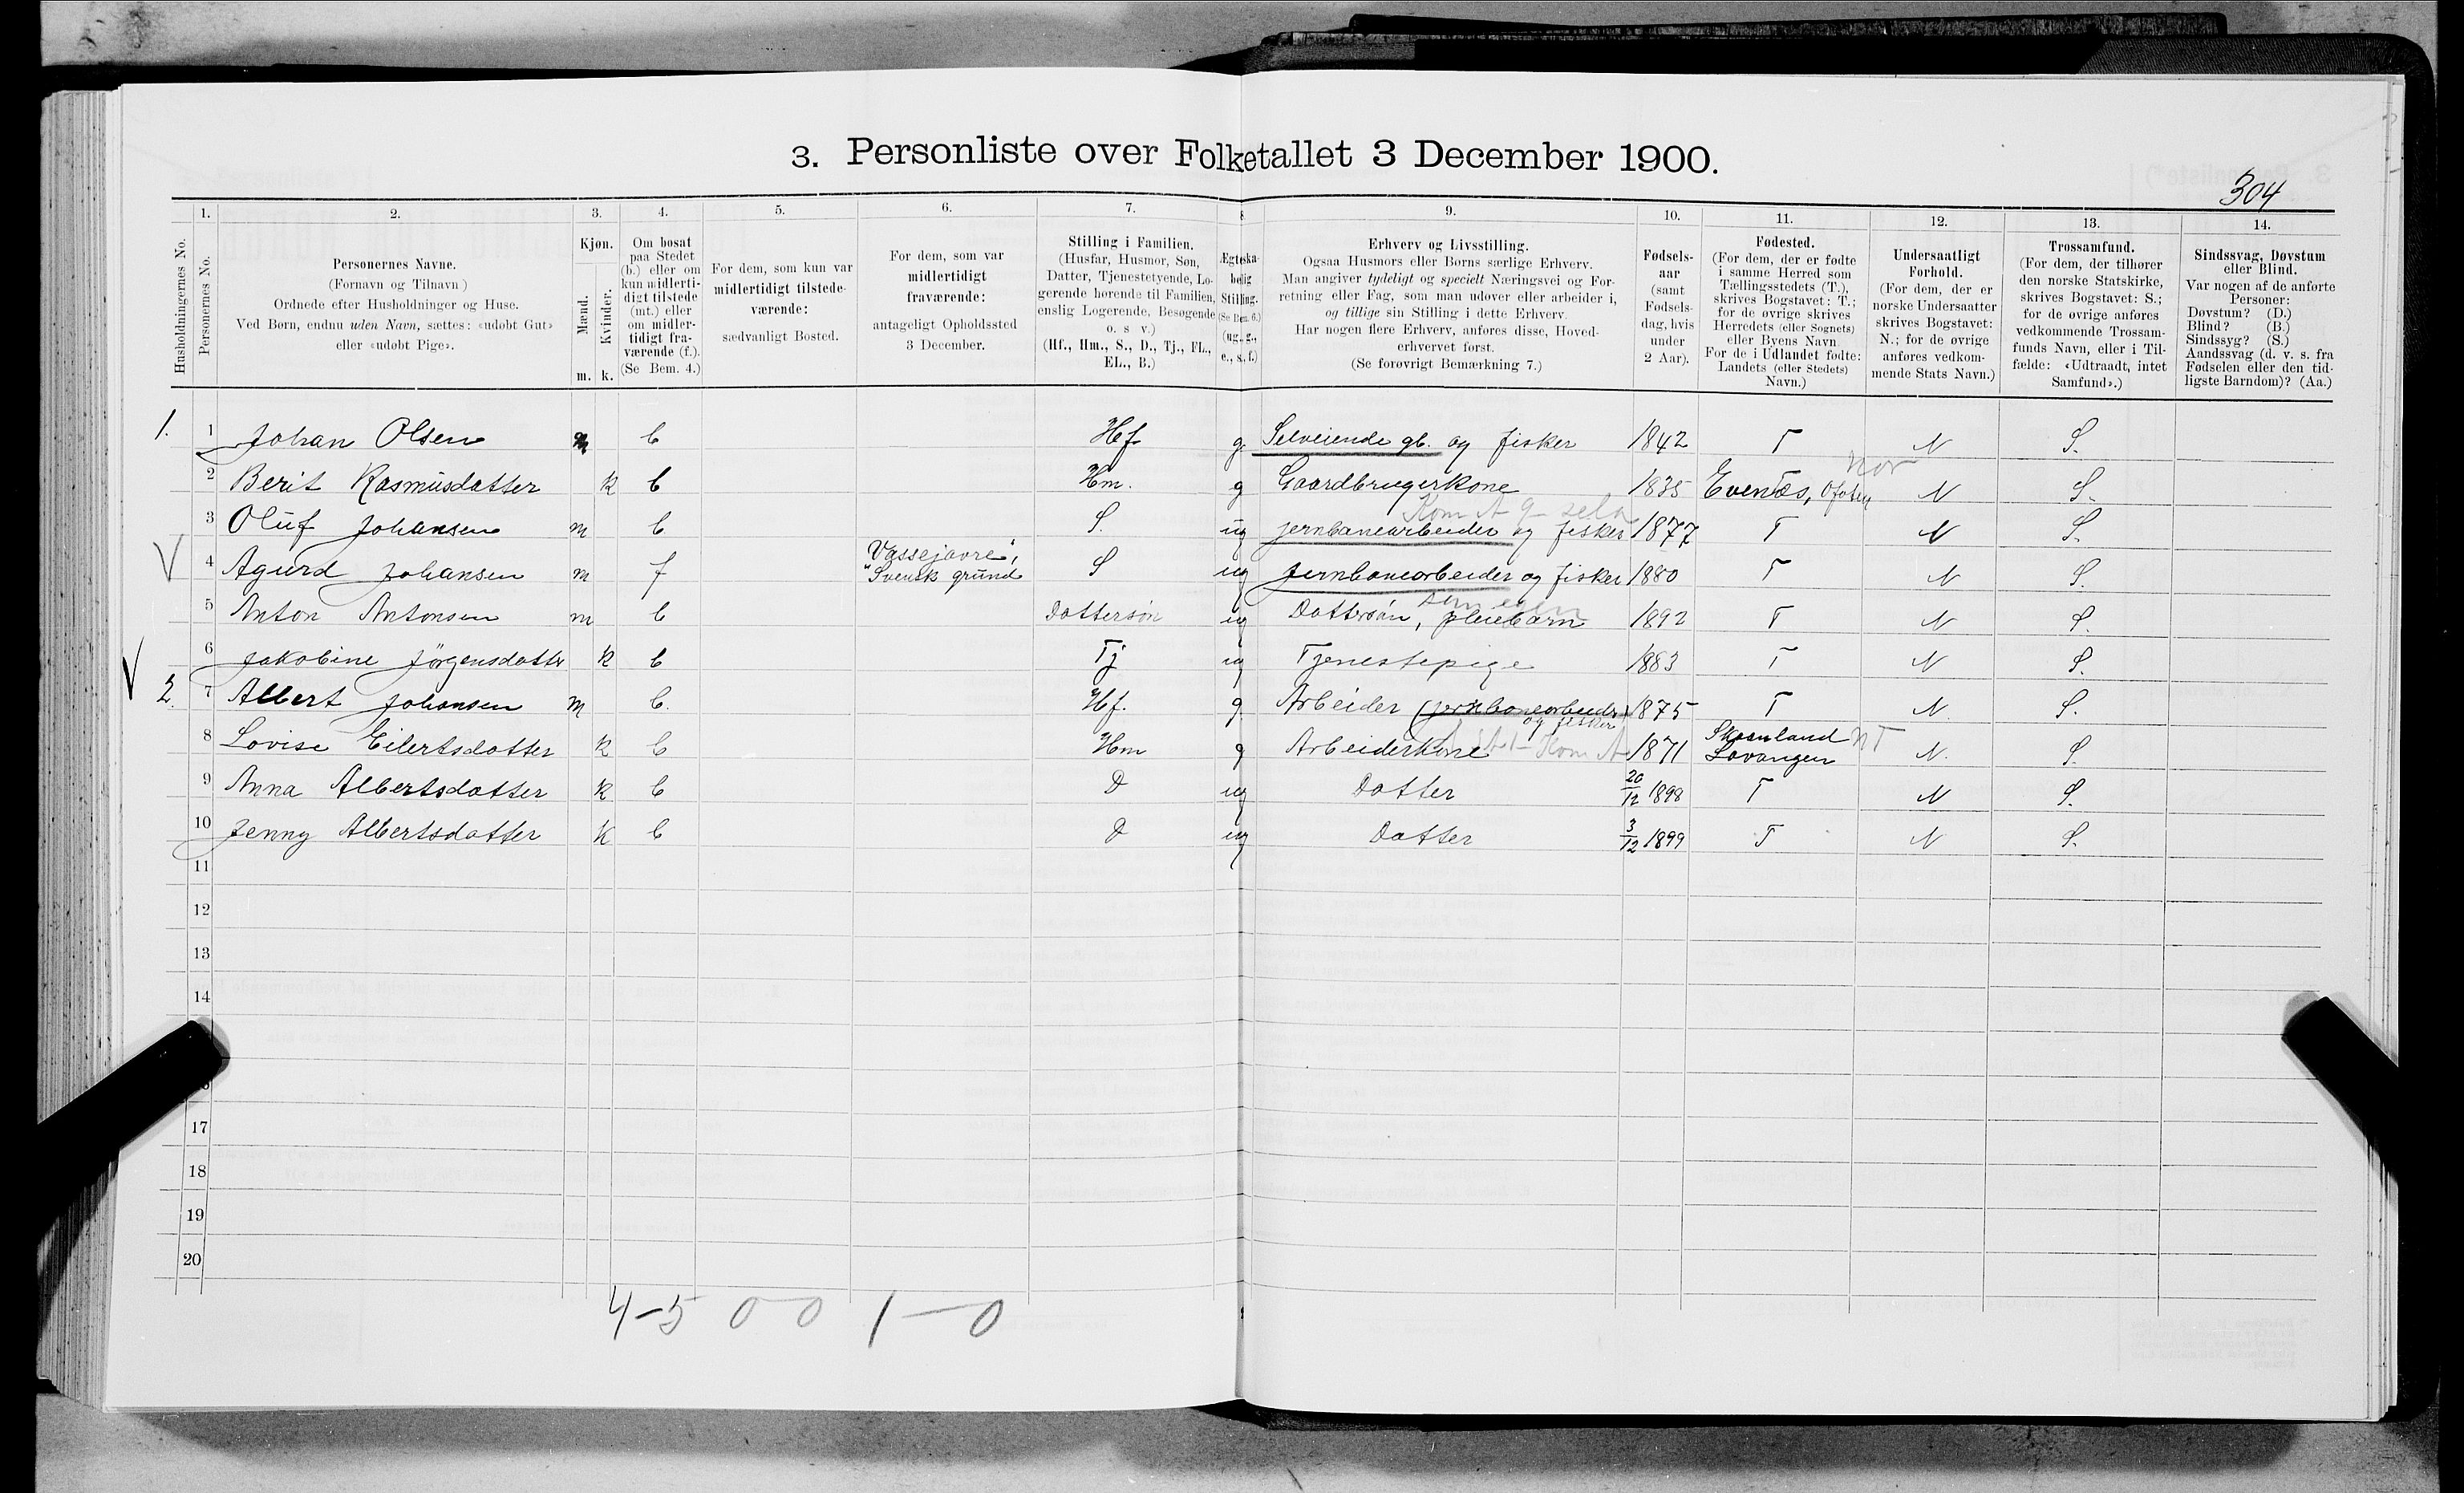 3. Personliste over Folketallet 3 December 1900.
304
Husholdningernes No.
1.
Personernes No.
2.
Personernes Navne.
(Fornavn og Tilnavn)
Ordnede efter Husholdninger og Huse.
Ved Børn, endnu uden Navn, sættes: «udøbt Gut»
eller «udøbt Pige».
3.
Kjøn.
Mænd.
Kvinder.
m. k.
4.
Om bosat
paa Stedet
(b.) eller om
kun midlerti-
digt tilstede
(mt.) eller
om midler-
tidigt fra-
værende (f.).
(Se Bem. 4.)
5.
For dem, som kun var
midlertidigt tilstede-
værende:
sædvanligt Bosted.
6.
For dem, som var
midlertidigt
fraværende:
antageligt Opholdssted
3 December.
7.
Stilling i Familien.
(Husfar, Husmor, Søn,
Datter, Tjenestetyende, Lo-
gerende hørende til Familien,
enslig Logerende, Besøgende
o. s v.)
(Hf., Hm., S., D., Tj., FL.,
EL., B.)
8
Ægteska-
belig
Stilling.
(Se Bem. 6.)
(ug., g.,
e., s., f.)
9.
Erhverv og Livsstilling.
Ogsaa Husmors eller Børns særlige Erhverv.
Man angiver tydeligt og specielt Næringsvei og For-
retning eller Fag, som man udøver eller arbeider i,
og tillige sin Stilling i dette Erhverv.
Har nogen flere Erhverv, anføres disse, Hoved-
erhvervet først.
(Se forøvrigt Bemærkning 7.)
10.
Fødsels-
aar
(samt
Fødsels-
dag, hvis
under
2 Aar).
11.
Fødested.
(For dem, der er fødte
i samme Herred som
Tællingsstedets (T.),
skrives Bogstavet: T.;
for de øvrige skrives
Herredets (eller Sognets)
eller Byens Navn
For de i Udlandet fødte:
Landets (eller Stedets)
Navn.)
12.
Undersaatligt
Forhold.
(For dem, der er
norske Undersaatter
skrives Bogstavet:
N.; for de øvrige
anføres vedkom-
mende Stats Navn.)
13.
Trossamfund.
(For dem, der tilhører
den norske Statskirke,
skrives Bogstavet: S.;
for de øvrige anføres
vedkommende Trossam-
funds Navn, eller i Til-
fælde: «Udtraadt, intet
Samfund».)
14.
Sindssvag, Døvstum
eller Blind.
Var nogen af de anførte
Personer:
Døvstum? (D.)
Blind? (B.)
Sindssyg? (S.)
Aandssvag (d. v. s. fra
Fødselen eller den tid-
ligste Barndom)? (Aa.)
1. 1 Johan Olsen m b Hf g Selveiende gb. og fisker 1842 T N S.
Nor
2 Berit Rasmusdatter k b Hm. g Gaardbrugerkone 1835 Evenæs, Ofoten N S.
Kom A
3 Oluf Johansen m b S. ug jernbanearbeider og fisker 1877 T N S.
Vassejavre",
4 Agurd Johansen m f "Svensk grund S ug Jernbanearbeider og fisker 1880 T N S.
5 Anton Antonsen m b Dattersøn ug Dattersøn, pleiebarn 1892 T N S.
6 Jakobine Jørgensdatter k b Tj ug Tjenestepige 1883 T N S.
2. 7 Albert Johansen m b. Hf. g. Arbeider (jernbanearbeider) 1875 T N. S.
og fisker
Skaanland NT
8 Lovise Eilertsdatter k b Hm g Arbeiderkone Kom A 1871 Lavangen N. S.
9 Anna Albertsdatter k b D ug Datter 20/12 1898 T N S.
10 Jenny Albertsdatter k b D ug Datter 3/12 1899 T N S.
11
12
13
14
17
18
19
20
4-5 0 0 1-0